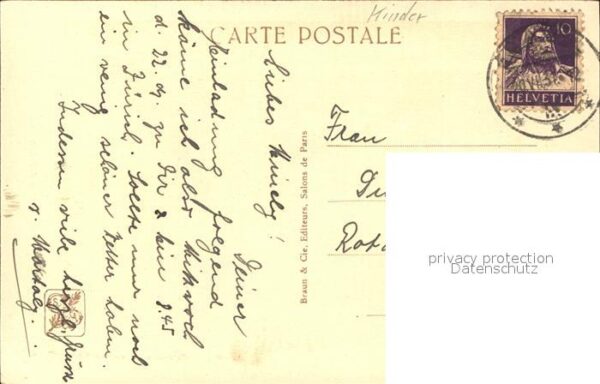 Kinder
CARTE POSTALE
10
HELVETIA
Liebes
! Deiner
Einladung folgend
käme ich also Mittwoch
d. 22. ds. zu Dir & bin 8.45
in Zürich. Sollte nur noch
ein wenig schöner Wetter haben.
Indessen viele herzl. Grüsse
v.
Braun & Cie, Editeurs, Salons de Paris
Frau
privacy protection
Datenschutz